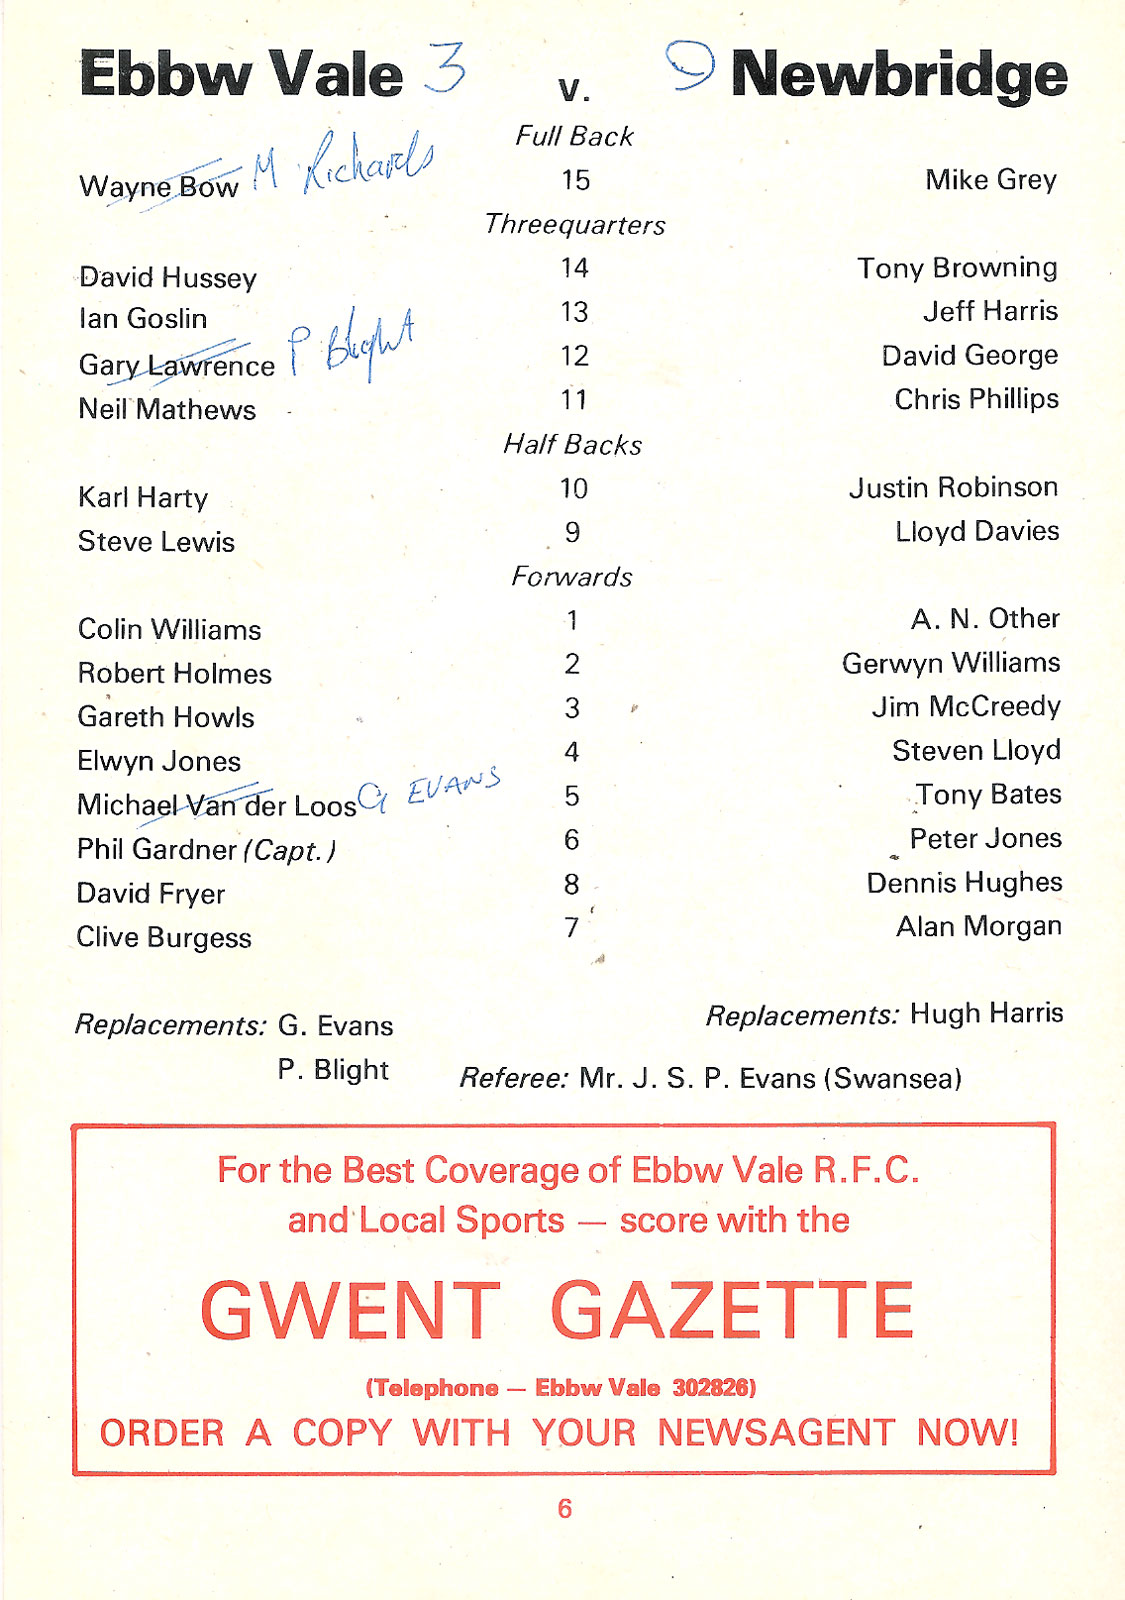 Ebbw Vale 3 v. 9 Newbridge
Full Back
Wayne Bow M Richards 15 Mike Grey
Threequarters
David Hussey 14 Tony Browning
Ian Goslin 13 Jeff Harris
Gary Lawrence P Blight 12 David George
Neil Mathews 11 Chris Phillips
Half Backs
Karl Harty 10 Justin Robinson
Steve Lewis 9 Lloyd Davies
Forwards
Colin Williams 1 A. N. Other
Robert Holmes 2 Gerwyn Williams
Gareth Howls 3 Jim McCreedy
Elwyn Jones 4 Steven Lloyd
Michael Van der Loos G EVANS 5 Tony Bates
Phil Gardner (Capt.) 6 Peter Jones
David Fryer 8 Dennis Hughes
Clive Burgess 7 Alan Morgan
Replacements: G. Evans Replacements: Hugh Harris
P. Blight Referee: Mr. J. S. P. Evans (Swansea)
For the Best Coverage of Ebbw Vale R.F.C.
and Local Sports — score with the
GWENT GAZETTE
(Telephone — Ebbw Vale 302826)
ORDER A COPY WITH YOUR NEWSAGENT NOW!
6